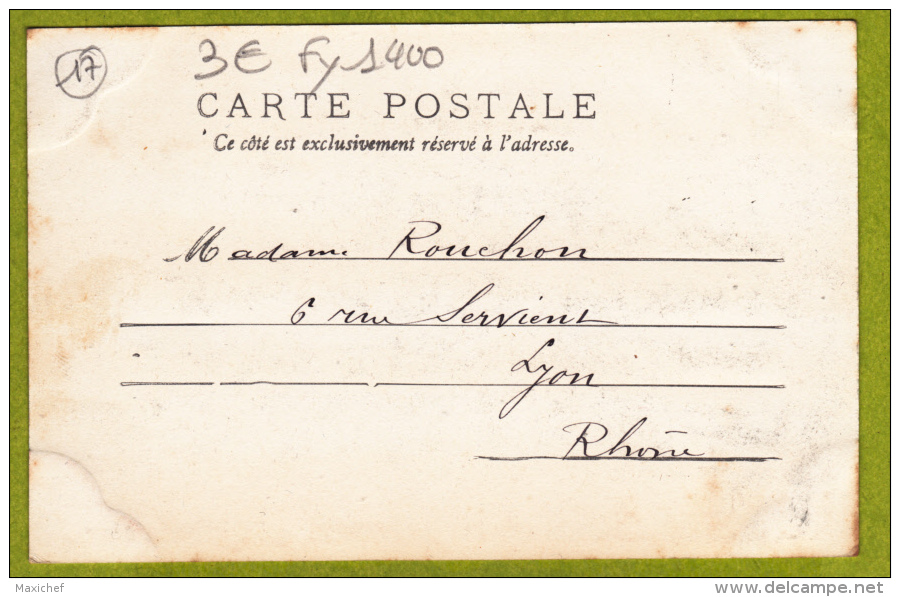 17
3€ Fy 1400
CARTE POSTALE
Ce côté est exclusivement réservé à l'adresse.
Madame Rouchon
6 rue Servient
Lyon
Rhône
Maxichef
www.delcampe.net